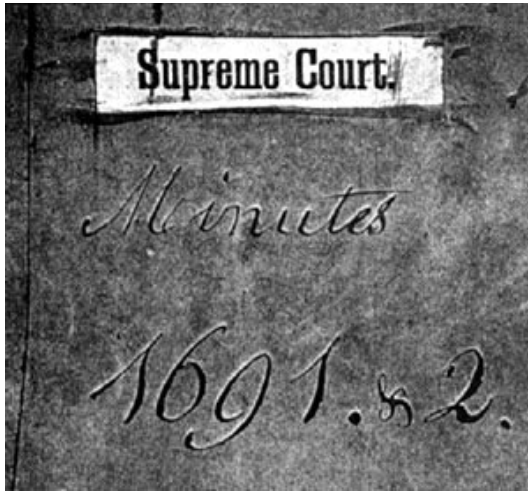 Supreme Court.
Minutes
1691. & 2.